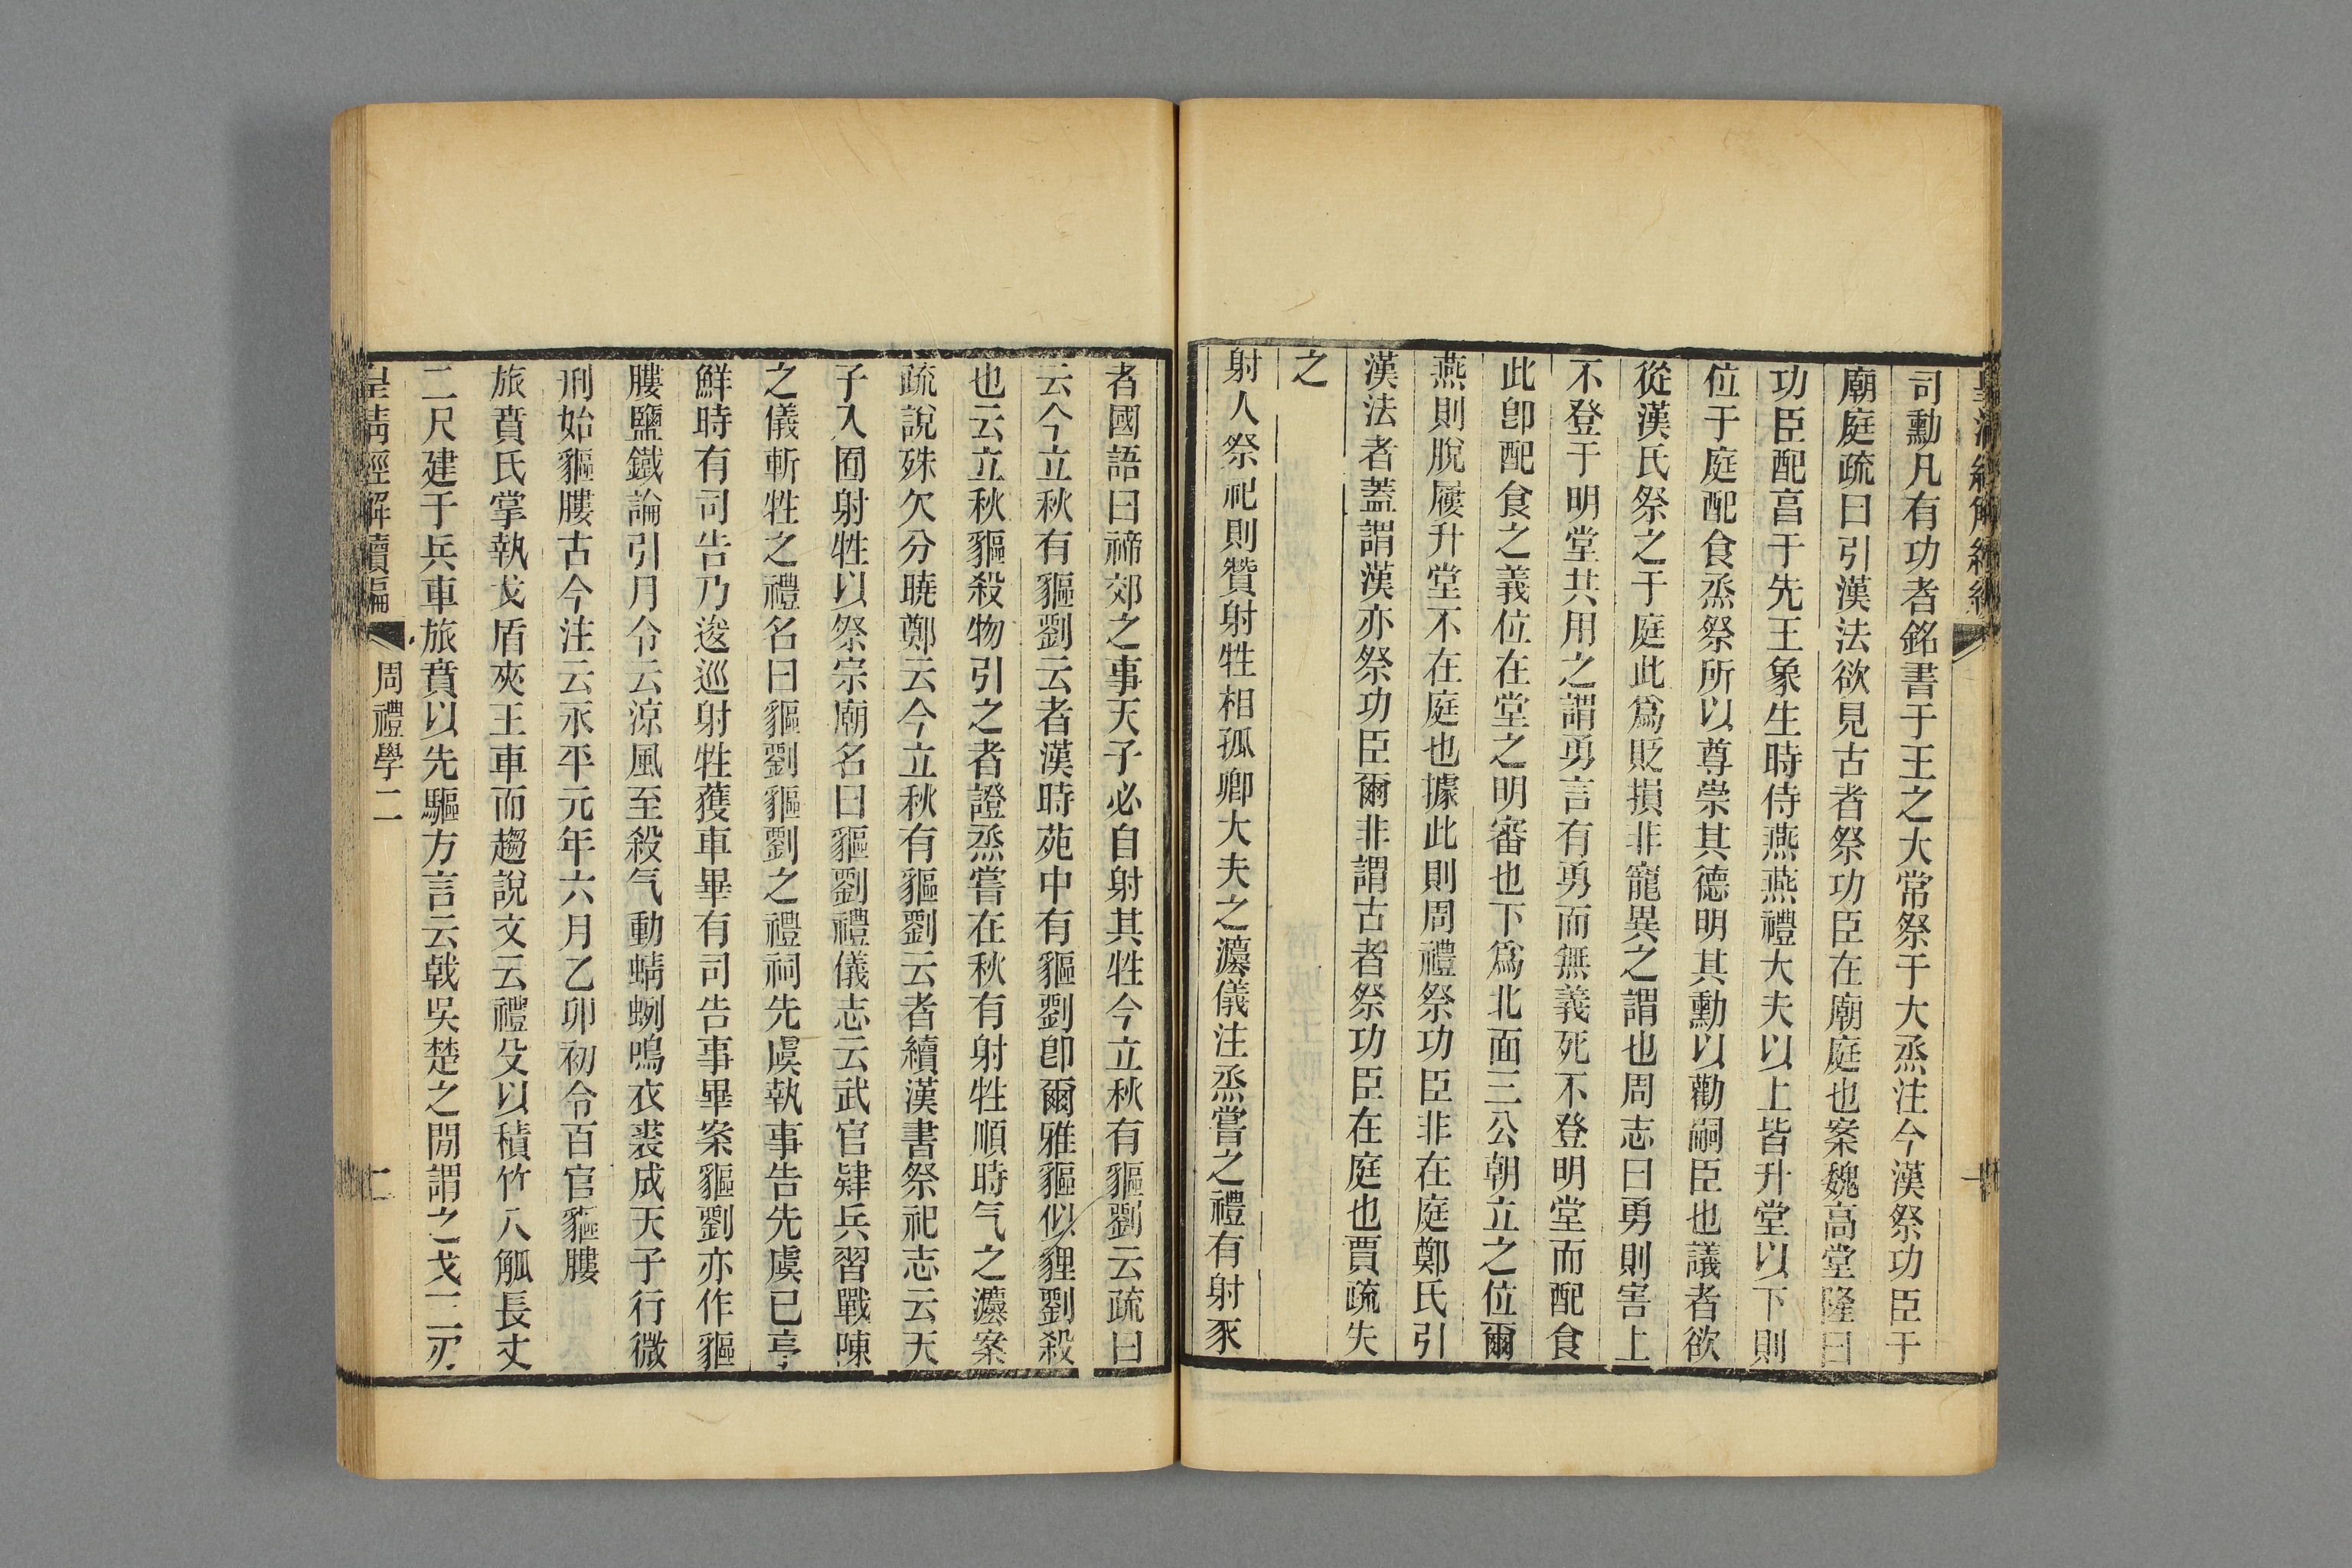 司勳凡有功者銘書于王之大常祭于大烝注今漢祭功臣于
廟庭疏曰引漢法欲見古者祭功臣在廟庭也案魏高堂隆曰
功臣配亯于先王象生時侍燕燕禮大夫以上皆升堂以下則
位于庭配食烝祭所以尊崇其德明其勳以勸嗣臣也議者欲
從漢氏祭之于庭此爲貶損非寵異之謂也周志曰勇則害上
不登于明堂共用之謂勇言有勇而無義死不登明堂而配食
此卽配食之義位在堂之明審也下爲北面三公朝立之位爾
燕則脫屨升堂不在庭也據此則周禮祭功臣非在庭鄭氏引
漢法者蓋謂漢亦祭功臣爾非謂古者祭功臣在庭也賈疏失
之
射人祭祀則贊射牲相孤卿大夫之灋儀注烝嘗之禮有射豕
者國語曰禘郊之事天子必自射其牲今立秋有貙劉云疏曰
云今立秋有貙劉云者漢時苑中有貙劉卽爾雅貙似貍劉殺
也云立秋貙殺物引之者證烝嘗在秋有射牲順時气之灋案
疏說殊欠分曉鄭云今立秋有貙劉云者續漢書祭祀志云天
子入囿射牲以祭宗廟名曰貙劉禮儀志云武官肄兵習戰陳
之儀斬牲之禮名曰貙劉貙劉之禮祠先虞執事告先虞已亯
鮮時有司告乃逡巡射牲獲車畢有司告事畢案貙劉亦作貙
膢鹽鐵論引月令云涼風至殺气動蜻蛚鳴衣裘成天子行微
刑始貙膢古今注云永平元年六月乙卯初令百官貙膢
旅賁氏掌執戈盾夾王車而趨說文云禮殳以積竹八觚長丈
二尺建于兵車旅賁以先驅方言云戟吳楚之閒謂之戈三刃
皇淸經解續編
周禮學二
二